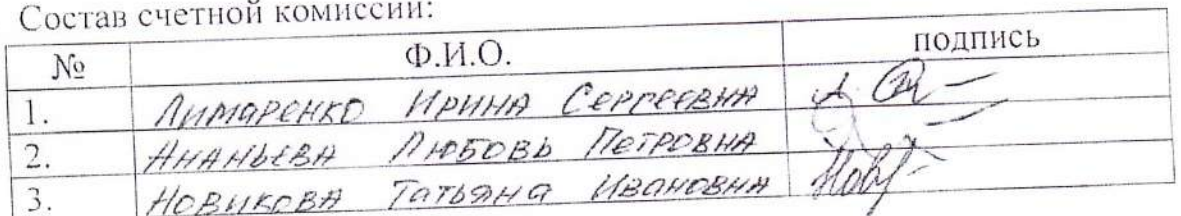 Состав счетной комиссии:
№ Ф.И.О. подпись
1. Лимаренко Ирина Сергеевна
2. Ананьева Любовь Петровна
3. Новикова Татьяна Ивановна